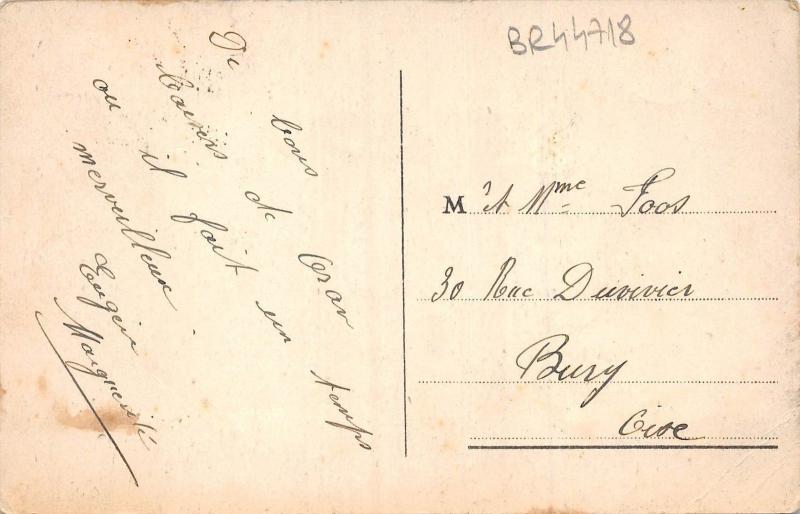 BR44718
De bons de Oran
baisers
où il fait un temps
merveilleux.
Eugène
Marguerite
M et Mme Foos
30 Rue Duvivier
Bury
Oise